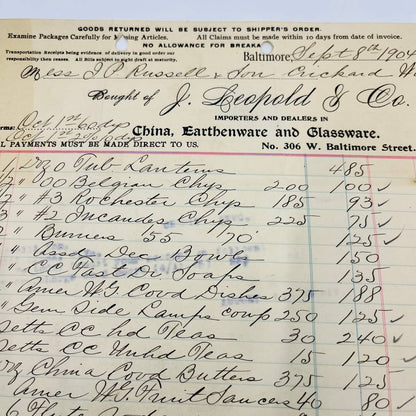 GOODS RETURNED WILL BE SUBJECT TO SHIPPER'S ORDER.
Examine Packages Carefully for Missing Articles. All Claims must be made within 10 days from date of invoice.
NO ALLOWANCE FOR BREAKA
Transportation Receipts being evidence of delivery in good order our
responsibility then ceases. All Bills subject to sight draft at maturity.
Baltimore, Sept 8th 1904
Mess J P Russell & Son
Bought of J. Leopold & Co.
IMPORTERS AND DEALERS IN
China, Earthenware and Glassware.
erms: Oct 1st 60 dys
Oct 1st 2% dys
L PAYMENTS MUST BE MADE DIRECT TO US. No. 306 W. Baltimore Street.
Doz 0 Tub. Lanterns 485
/2 " 00 Belgian Chys 200 100
/2 " #3 Rochester Chys 185 93
/3 " #2 Incandes Chys 225 75
/2 " Burners 55 70 125
" Assd Dec Bowls 150
" CC Soaps 135
" Amer W.G. Covd Dishes 375 188
" Gem Side Lamps comp 250 125
Setts CC hd Teas 30 240
Setts CC Unhd Teas 15 120
Doz China Covd Butters 375 125
Amer W.G. Fruit Sauces 40 80